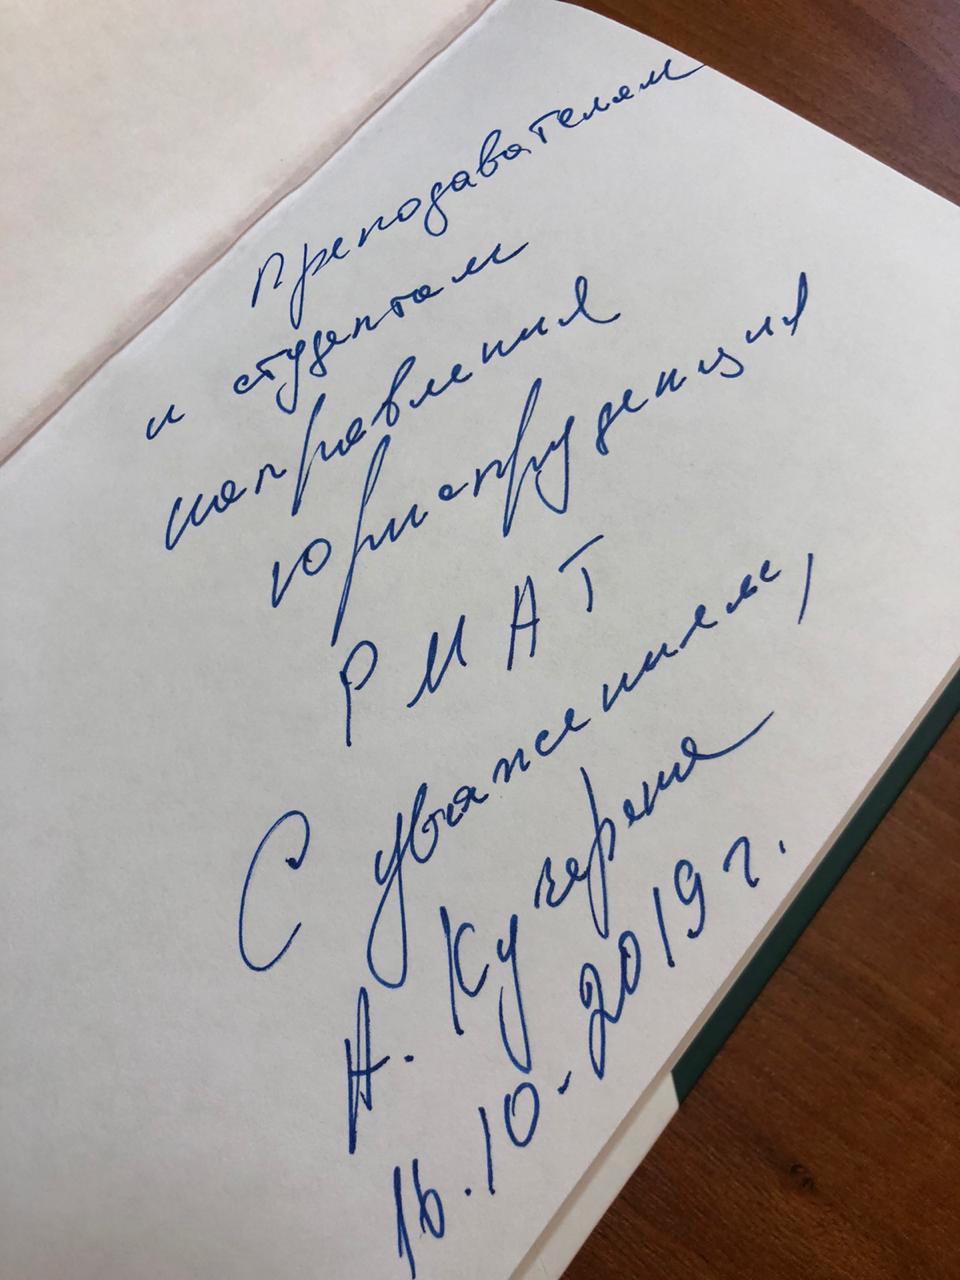 Преподавателям
и студентам
направления
юриспруденция
РМАТ
С уважением,
А. Кучерена
16.10.2019 г.